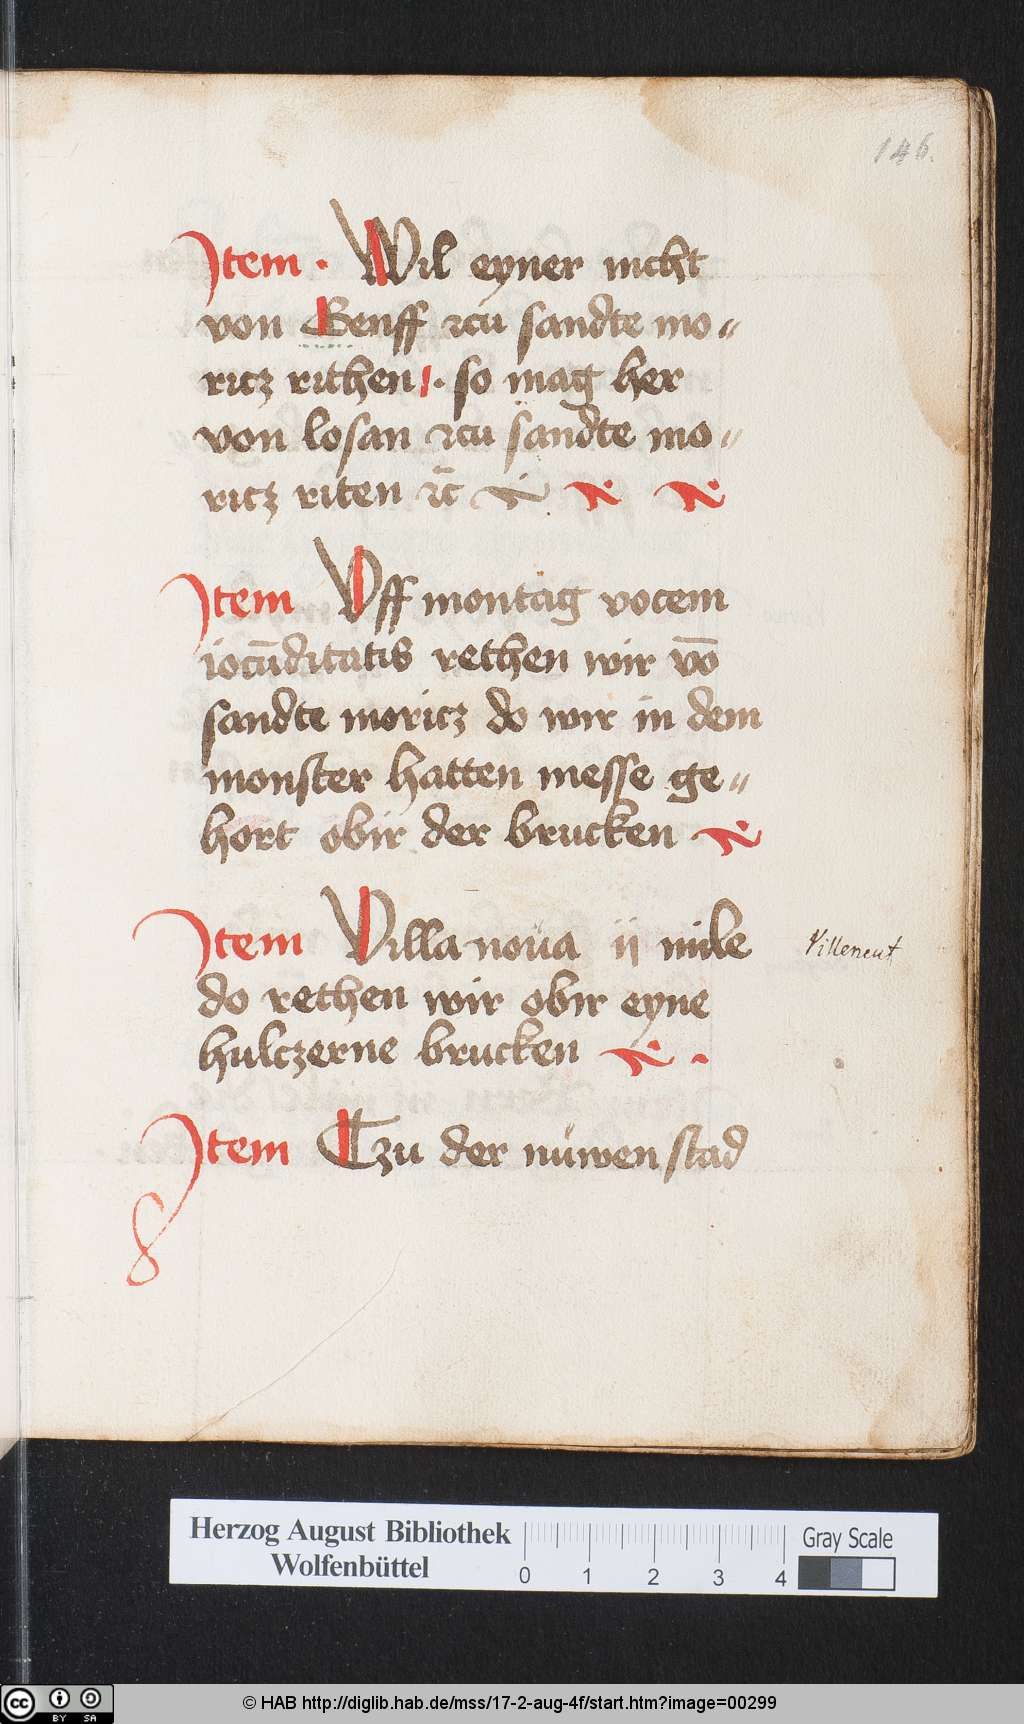 146.
Item · Wil eyner nicht
von Genff zcu sandte mo〃
ricz rithen · so mag her
von losan zcu sandte mo〃
ricz riten zc̄
Item Vff montag vocem
iocūditatis rethen wir vō
sandte moricz do wir in dem
monster hatten messe ge〃
hort obir der brucken
Item Villa noua ij mile
Villeneut
do rethen wir obir eyne
hulczerne brucken
Item Tzu der nuwen stad
Herzog August Bibliothek
Wolfenbüttel
0 1 2 3 4
Gray Scale
cc BY SA
© HAB http://diglib.hab.de/mss/17-2-aug-4f/start.htm?image=00299